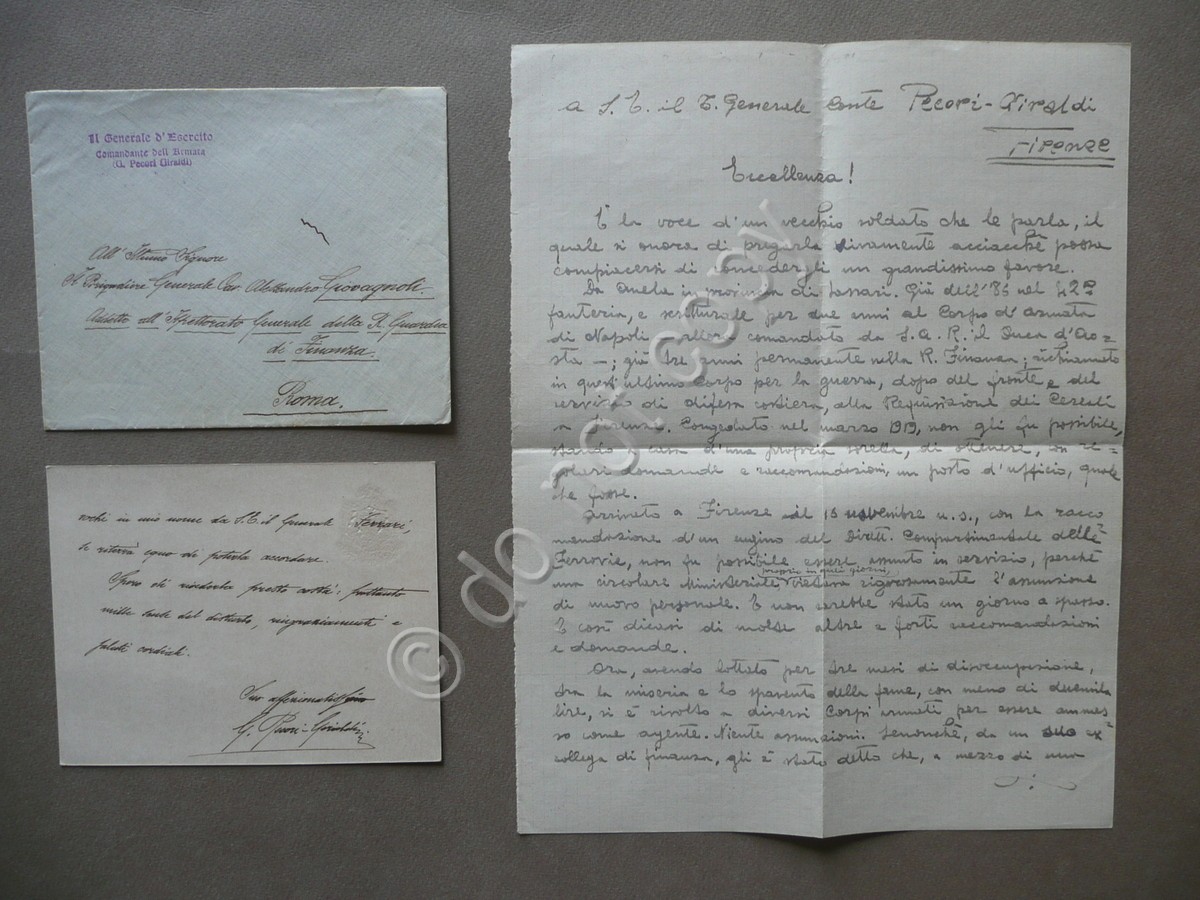 Il Generale d'Esercito
Comandante dell'Armata
(G. Pecori Giraldi)
All' Illmo Signore
Il Brigadiere Generale Cav Alessandro Giovagnoli.
Addetto all' Ispettorato Generale della R. Guardia
di Finanza.
Roma.
in mio nome da S. E. il Generale Ferrari,
se riterrà equo di poterla accordare.
Spero di rivederla presto costà: frattanto
mille scuse del disturbo, ringraziamenti e
saluti cordiali.
Suo
G. Pecori-Giraldi
a S. E. il T. Generale Conte Pecori-Giraldi
Firenze
Eccellenza!
È la voce d'un vecchio soldato che le parla, il
quale si onora di pregarla vivamente acciacchè possa
compiacersi di concedergli un grandissimo favore.
Da in provincia di Sassari. Già dell' '86 nel 42º
fanteria, e scritturale per due anni al Corpo d'armata
di Napoli allora comandato da S. A. R. il Duca d'Ao=
sta -; già tre anni permanente nella R. Finanza; richiamato
in quest'ultimo corpo per la guerra, dopo del fronte e del
servizio di difesa costiera, alla Requisizione dei Cereali
a Firenze. Congedato nel marzo 1919, non gli fu possibile,
stando a casa d'una propria sorella, di ottenere, con re=
golari domande e raccomandazioni, un posto d'ufficio, quale
che fosse.
Arrivato a Firenze il 15 novembre u. s., con la racco
mandazione d'un cugino del Dirett. Compartimentale delle
Ferrovie, non fu possibile essere assunto in servizio, perchè
proprio in quei giorni,
una circolare Ministeriale, vietava rigorosamente l'assunzione
di nuovo personale. E non sarebbe stato un giorno a spasso.
E così dicasi di molte altre e forti raccomandazioni
e domande.
Ora, avendo lottato per tre mesi di disoccupazione,
tra la miseria e lo spavento della fame, con meno di duemila
lire, si è rivolto a diversi Corpi armati per essere ammes=
so come agente. Niente assunzioni. Senonchè, da un suo ex
collega di finanza, gli è stato detto che, a mezzo di una
© do not copy